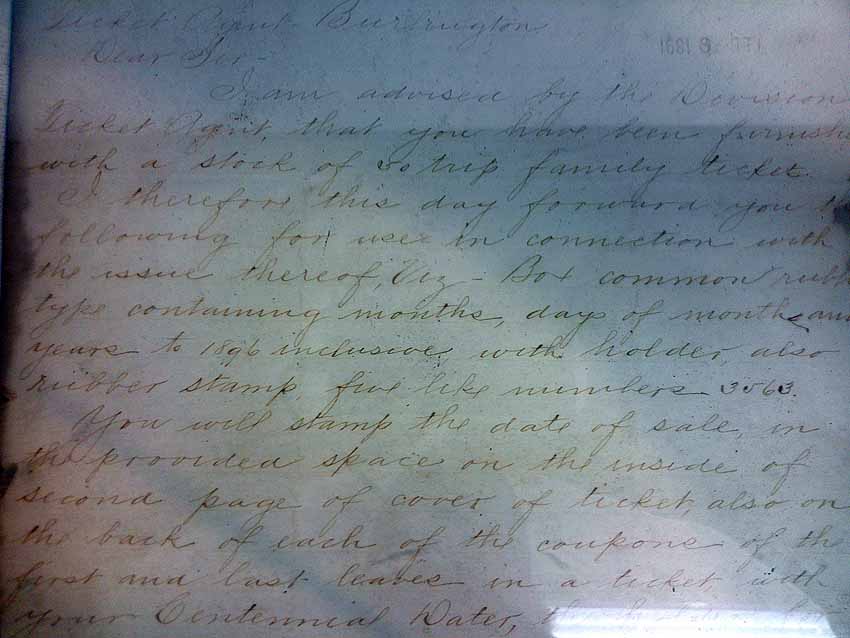 Ticket Agent Burlington
Dear Sir-
I am advised by the Division
Ticket Agent, that you have been furnishe
with a stock of 30 trip family ticket.
I therefore this day forward you
following for use in connection with
the issue thereof, Viz - Box common rubb
type containing months, day of month, and
years to 1896 inclusive, with holder, also
rubber stamp, five like numbers 3563.
You will stamp the date of sale, in
the provided space on the inside of
second page of cover of ticket, also on
the back of each of the coupons of the
first and last leaves in a ticket, with
your Centennial Dater,